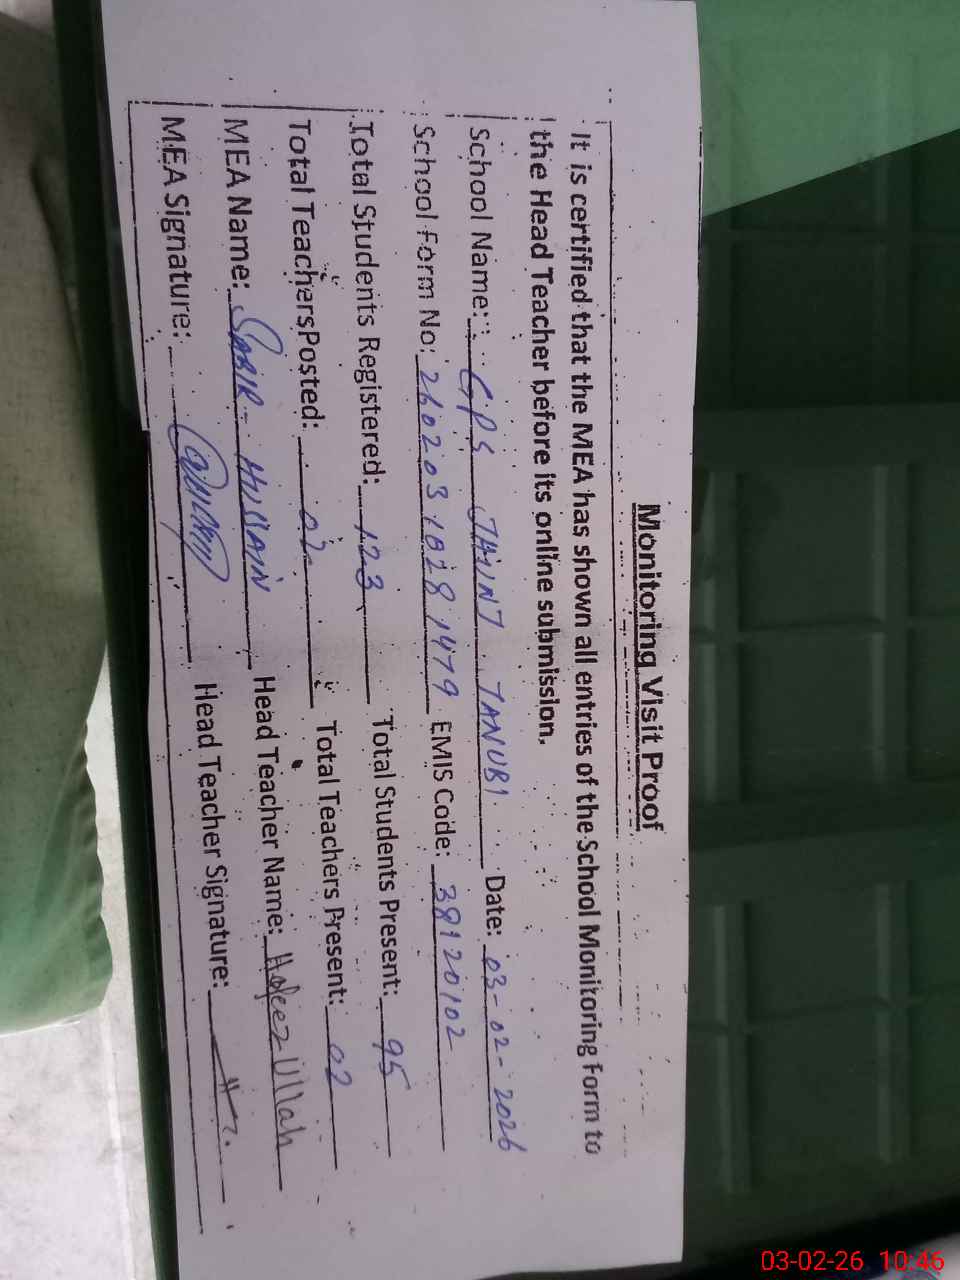 Monitoring Visit Proof
It is certified that the MEA has shown all entries of the School Monitoring Form to
the Head Teacher before its online submission.
School Name: GPS JHUNT TANUBI Date: 03-02-2026
School Form No: 26020310281479 EMIS Code: 38120102
Total Students Registered: 123 Total Students Present: 95
Total Teachers Posted: 02 Total Teachers Present: 02
MEA Name: SABIR HUSSAIN Head Teacher Name: Hafeez Ullah
MEA Signature: Head Teacher Signature:
03-02-26 10:46